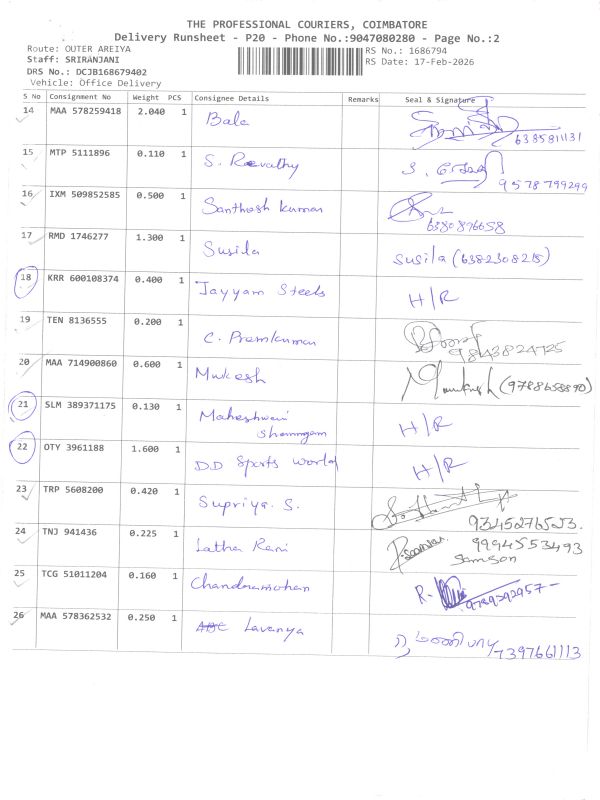 THE PROFESSIONAL COURIERS, COIMBATORE
Delivery Runsheet - P20 - Phone No.:9047080280 - Page No.:2
Route: OUTER AREIYA RS No.: 1686794
Staff: SRIRANJANI RS Date: 17-Feb-2026
DRS No.: DCJB168679402
Vehicle: Office Delivery
S No Consignment No Weight PCS Consignee Details Remarks Seal & Signature
14 MAA 578259418 2.040 1 Bala 6385811131
15 MTP 5111896 0.110 1 S. Revathy 9578799299
16 IXM 509852585 0.500 1 Santhosh kumar 6380896658
17 RMD 1746277 1.300 1 Susila Susila (6382308215)
18 KRR 600108374 0.400 1 Jayyam Steels H/R
19 TEN 8136555 0.200 1 C. Premkumar 9843824725
20 MAA 714900860 0.600 1 Mukesh (9788658890)
21 SLM 389371175 0.130 1 Maheshwari
Shanmugam H/R
22 OTY 3961188 1.600 1 DD Sports world H/R
23 TRP 5608200 0.420 1 Supriya. S. 9345276523.
24 TNJ 941436 0.225 1 Latha Rani 9994553493
Samson
25 TCG 51011204 0.160 1 Chandramohan R. 9789292957
26 MAA 578362532 0.250 1 Lavanya 7397661113